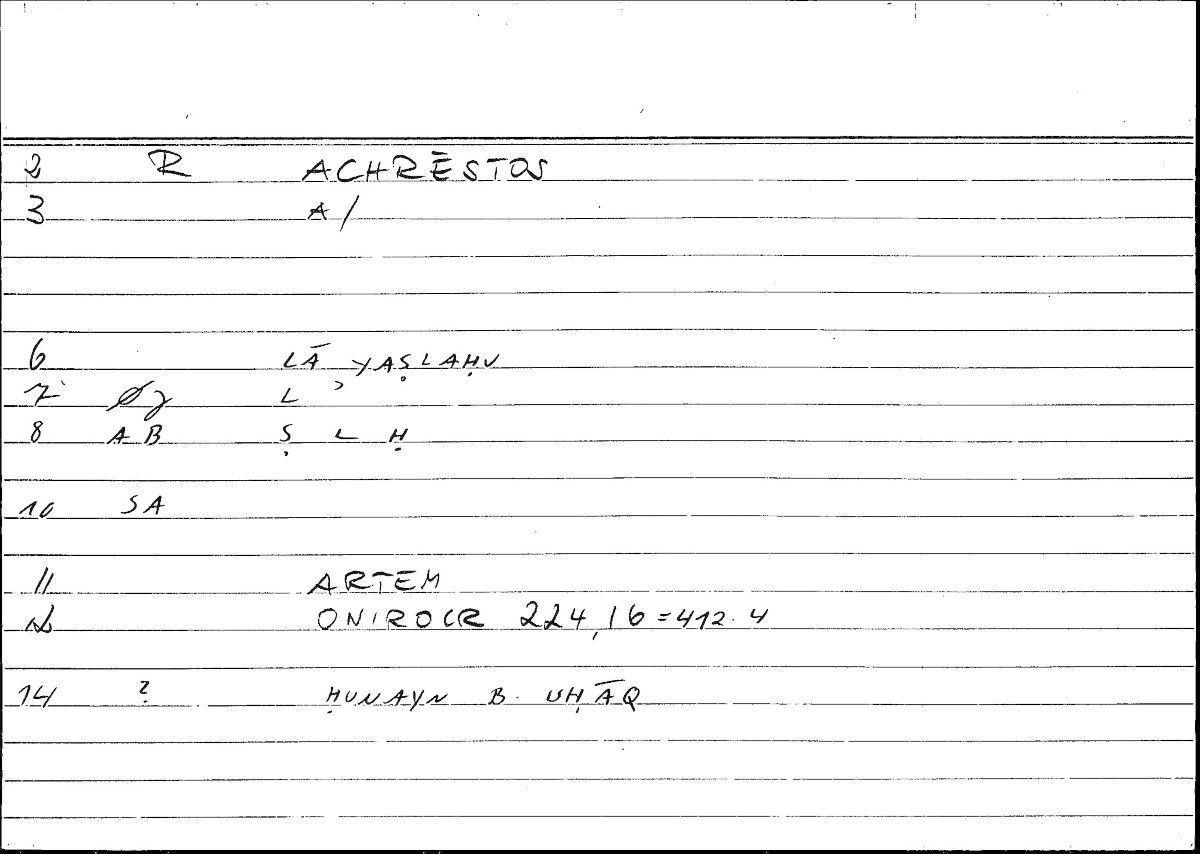 2 R ACHRĒSTOS
3 A/
6 LĀ YAṢLAḤU
7 Øz L ʾ
8 AB Ṣ L Ḥ
10 SA
11 ARTEM
12 ONIROCR 224,16=412.4
14 ḤUNAYN B.